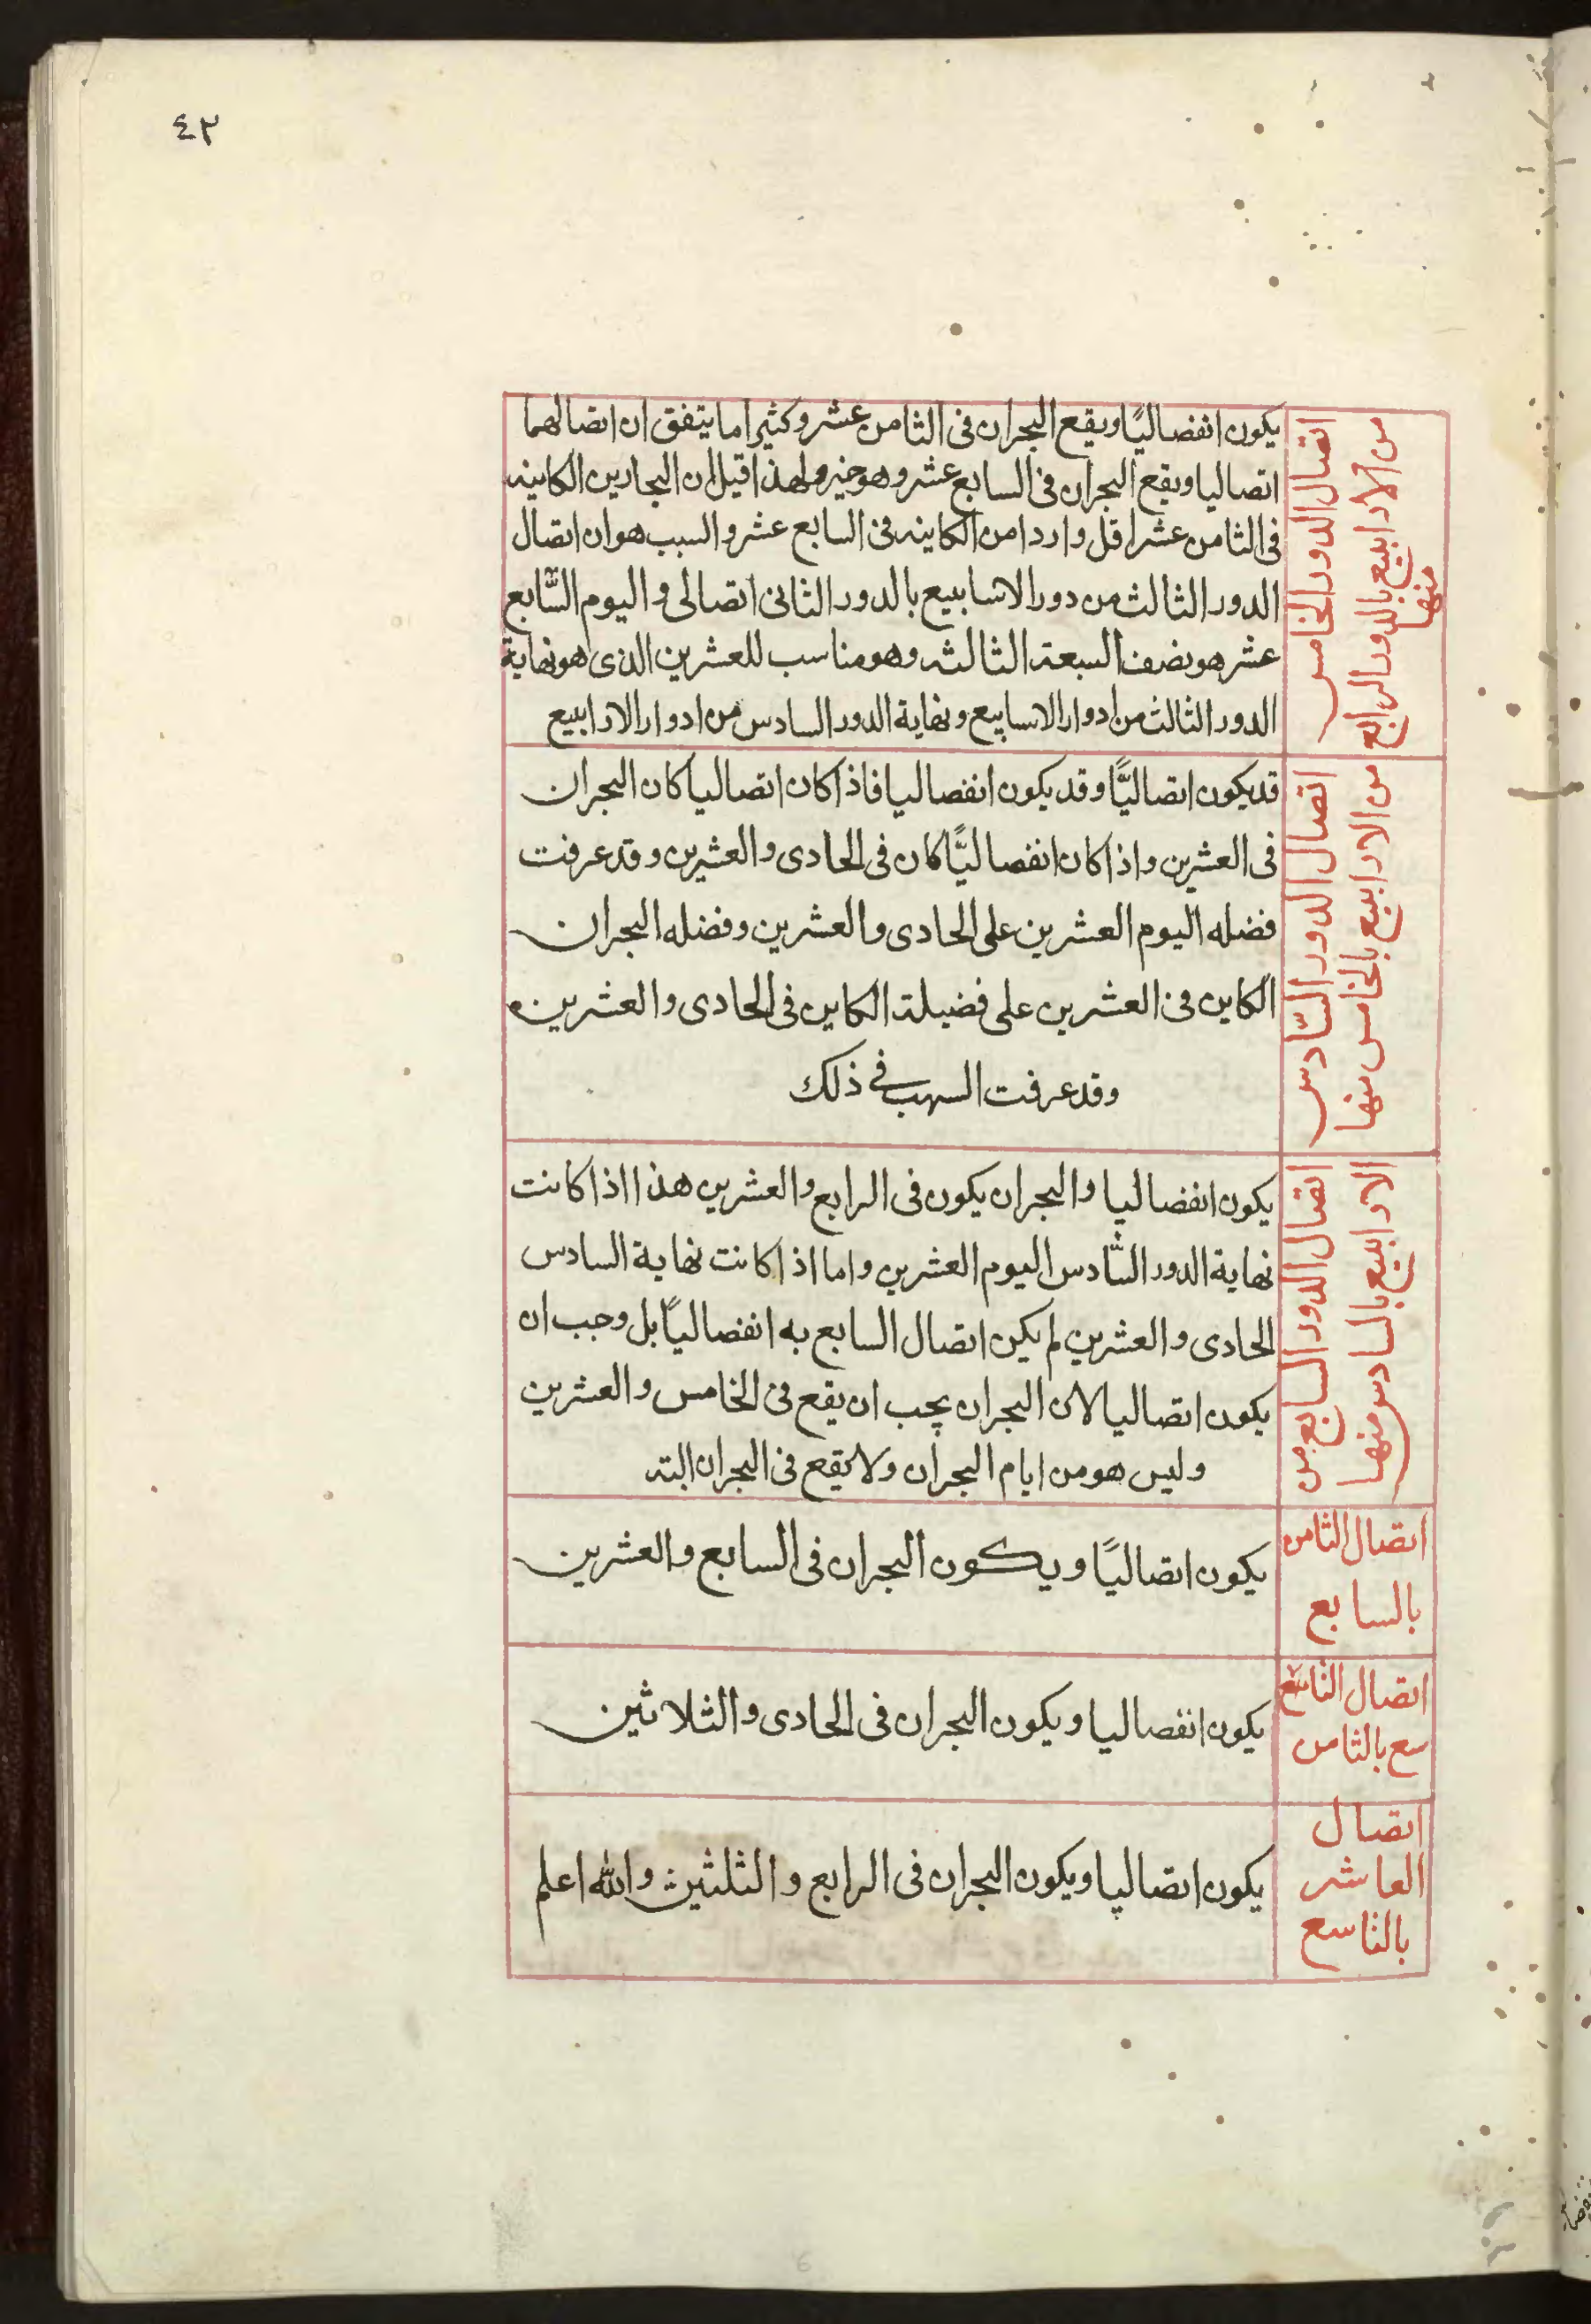 ٤٢
اتصال الدور الخامس
من الارابيع بالدور الرابع
منها
يكون انفصاليًا ويقع البحران فى الثامن عشر وكثيرا ما يتفق ان اتصالهما
اتصاليا ويقع البحران فى السابع عشر وهو خير ولهذا قيل ان البحارين الكاينه
فى الثامن عشر اقل واردا من الكاينه فى السابع عشر والسبب هو ان اتصال
الدور الثالث من دور الاسابيع بالدور الثانى اتصالى و اليوم السَّابع
عشر هو نصف السبعة الثالثه وهو مناسب للعشرين الذى هو نهاية
الدور الثالث من ادوار الاسابيع ونهاية الدور السادس من ادوار الارابيع
اتصال الدور السَّادس
من الارابيع بالخامس منها
قد يكون اتصاليًّا وقد يكون انفصاليا فاذا كان اتصاليا كان البحران
فى العشرين واذا كان انفصاليًّا كان فى الحادى والعشرين وقد عرفت
فضله اليوم العشرين على الحادى والعشرين وفضله البحران
الكاين فى العشرين على فضيلة الكاين فى الحادى والعشرين
وقد عرفت السبب فى ذلك
اتصال الدور السابع من
الارابيع بالسادس منها
يكون انفصاليا والبحران يكون فى الرابع والعشرين هذا اذا كانت
نهاية الدور السَّادس اليوم العشرين واما اذا كانت نهاية السادس
الحادى والعشرين لم يكن اتصال السابع به انفصاليًا بل وجب ان
يكون اتصاليا لان البحران يجب ان يقع فى الخامس والعشرين
وليس هو من ايام البحران ولا يقع فى البحران البته
اتصال الثامن
بالسابع
يكون اتصاليًا ويكون البحران فى السابع والعشرين
اتصال التاسع
سع بالثامن
يكون انفصاليا ويكون البحران فى الحادى والثلاثين
اتصال
العاشر
بالتاسع
يكون اتصاليا ويكون البحران فى الرابع والثلثين والله اعلم